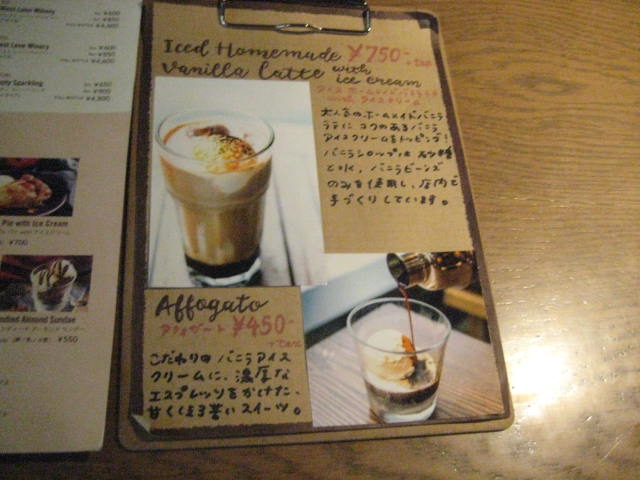 West Love Winery
¥600
¥4,600
Sparkling
¥4,800
Pie with Ice Cream
¥700
Almond Sundae
¥550
Iced Homemade ¥750-
+tax
Vanilla Latte with
ice cream
アイスホームメイドバニララテ
with アイスクリーム
大人気のホームメイドバニラ
ラテに コクのあるバニラ
アイスクリームをトッピング!
バニラシロップは 砂糖
と水、バニラビーンズ
のみを使用し、店内で
手づくりしています。
Affogato
アフォガート ¥450-
+tax
こだわりの バニラアイス
クリームに、濃厚な
エスプレッソをかけた、
甘くほろ苦いスイーツ。